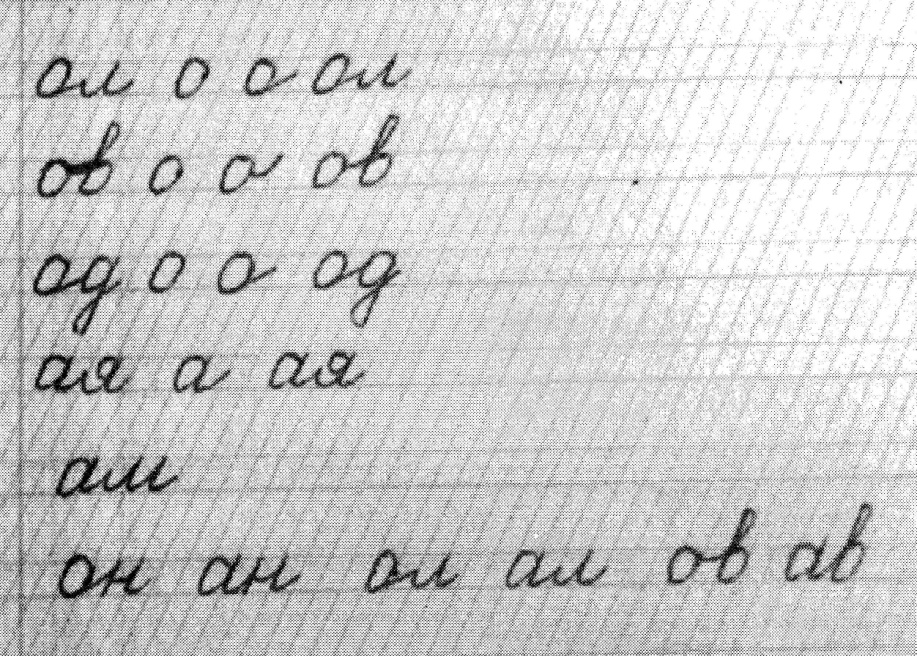 ол о о ол
ов о о ов
од о о од
ая а ая
ам
он ан ол ал ов ав